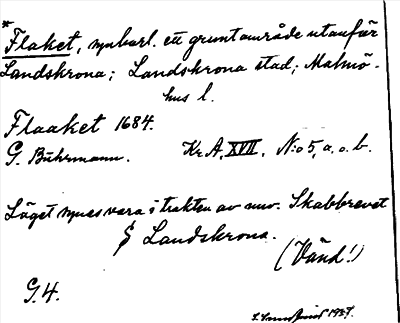 * Flaket, uppenbarl. ett grunt område utanför
Landskrona; Landskrona stad; Malmö-
hus l.
Flaaket 1684.
G. Buhrmann. Kr. A, XVII, No 5, a. o. b.
Läget synes vara i trakten av nuv. Skabbrevet
§ Landskrona.
(Vänd!)
G. 4.
1937.